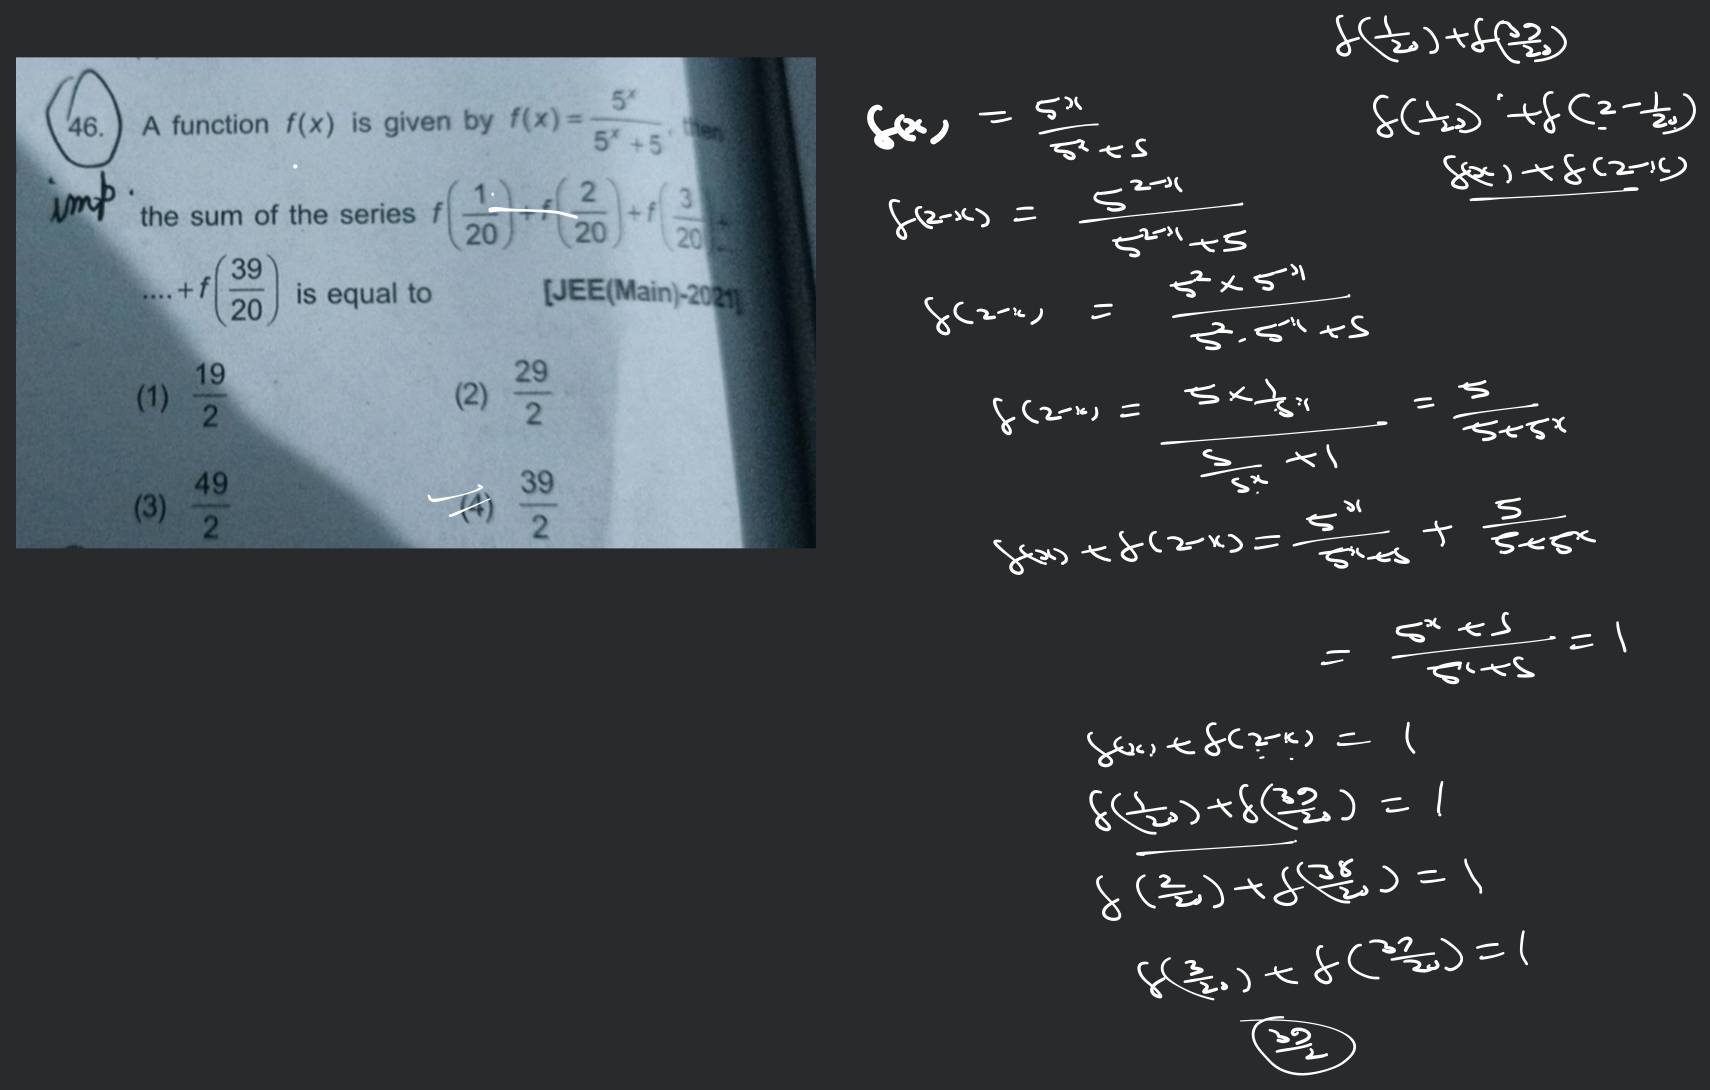 46. A function f(x) is given by f(x) = 5^x / (5^x + 5), then
imp.
the sum of the series f(1/20) + f(2/20) + f(3/20) + ...
.... + f(39/20) is equal to [JEE(Main)-2021]
(1) 19/2 (2) 29/2
(3) 49/2 (4) 39/2
f(1/20) + f(39/20)
f(1/20) + f(2 - 1/20)
f(x) + f(2-x)
f(x) = 5^x / (5^x + 5)
f(2-x) = 5^(2-x) / (5^(2-x) + 5)
f(2-x) = 5^2 × 5^-x / (5^2 . 5^-x + 5)
f(2-x) = (5 × 1/5^x) / (5/5^x + 1) = 5 / (5 + 5^x)
f(x) + f(2-x) = 5^x / (5^x + 5) + 5 / (5 + 5^x)
= (5^x + 5) / (5^x + 5) = 1
f(x) + f(2-x) = 1
f(1/20) + f(39/20) = 1
f(2/20) + f(38/20) = 1
f(3/20) + f(37/20) = 1
39/2